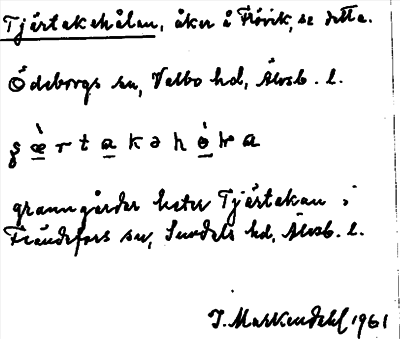 Tjärtakehålan, åker å Frövik, se detta.
Ödeborgs sn, Valbo hd, Älvsb. l.
grann gården heter Tjärtakan i
Frändefors sn, Sundals hd, Älvsb. l.
J. Markendahl 1961